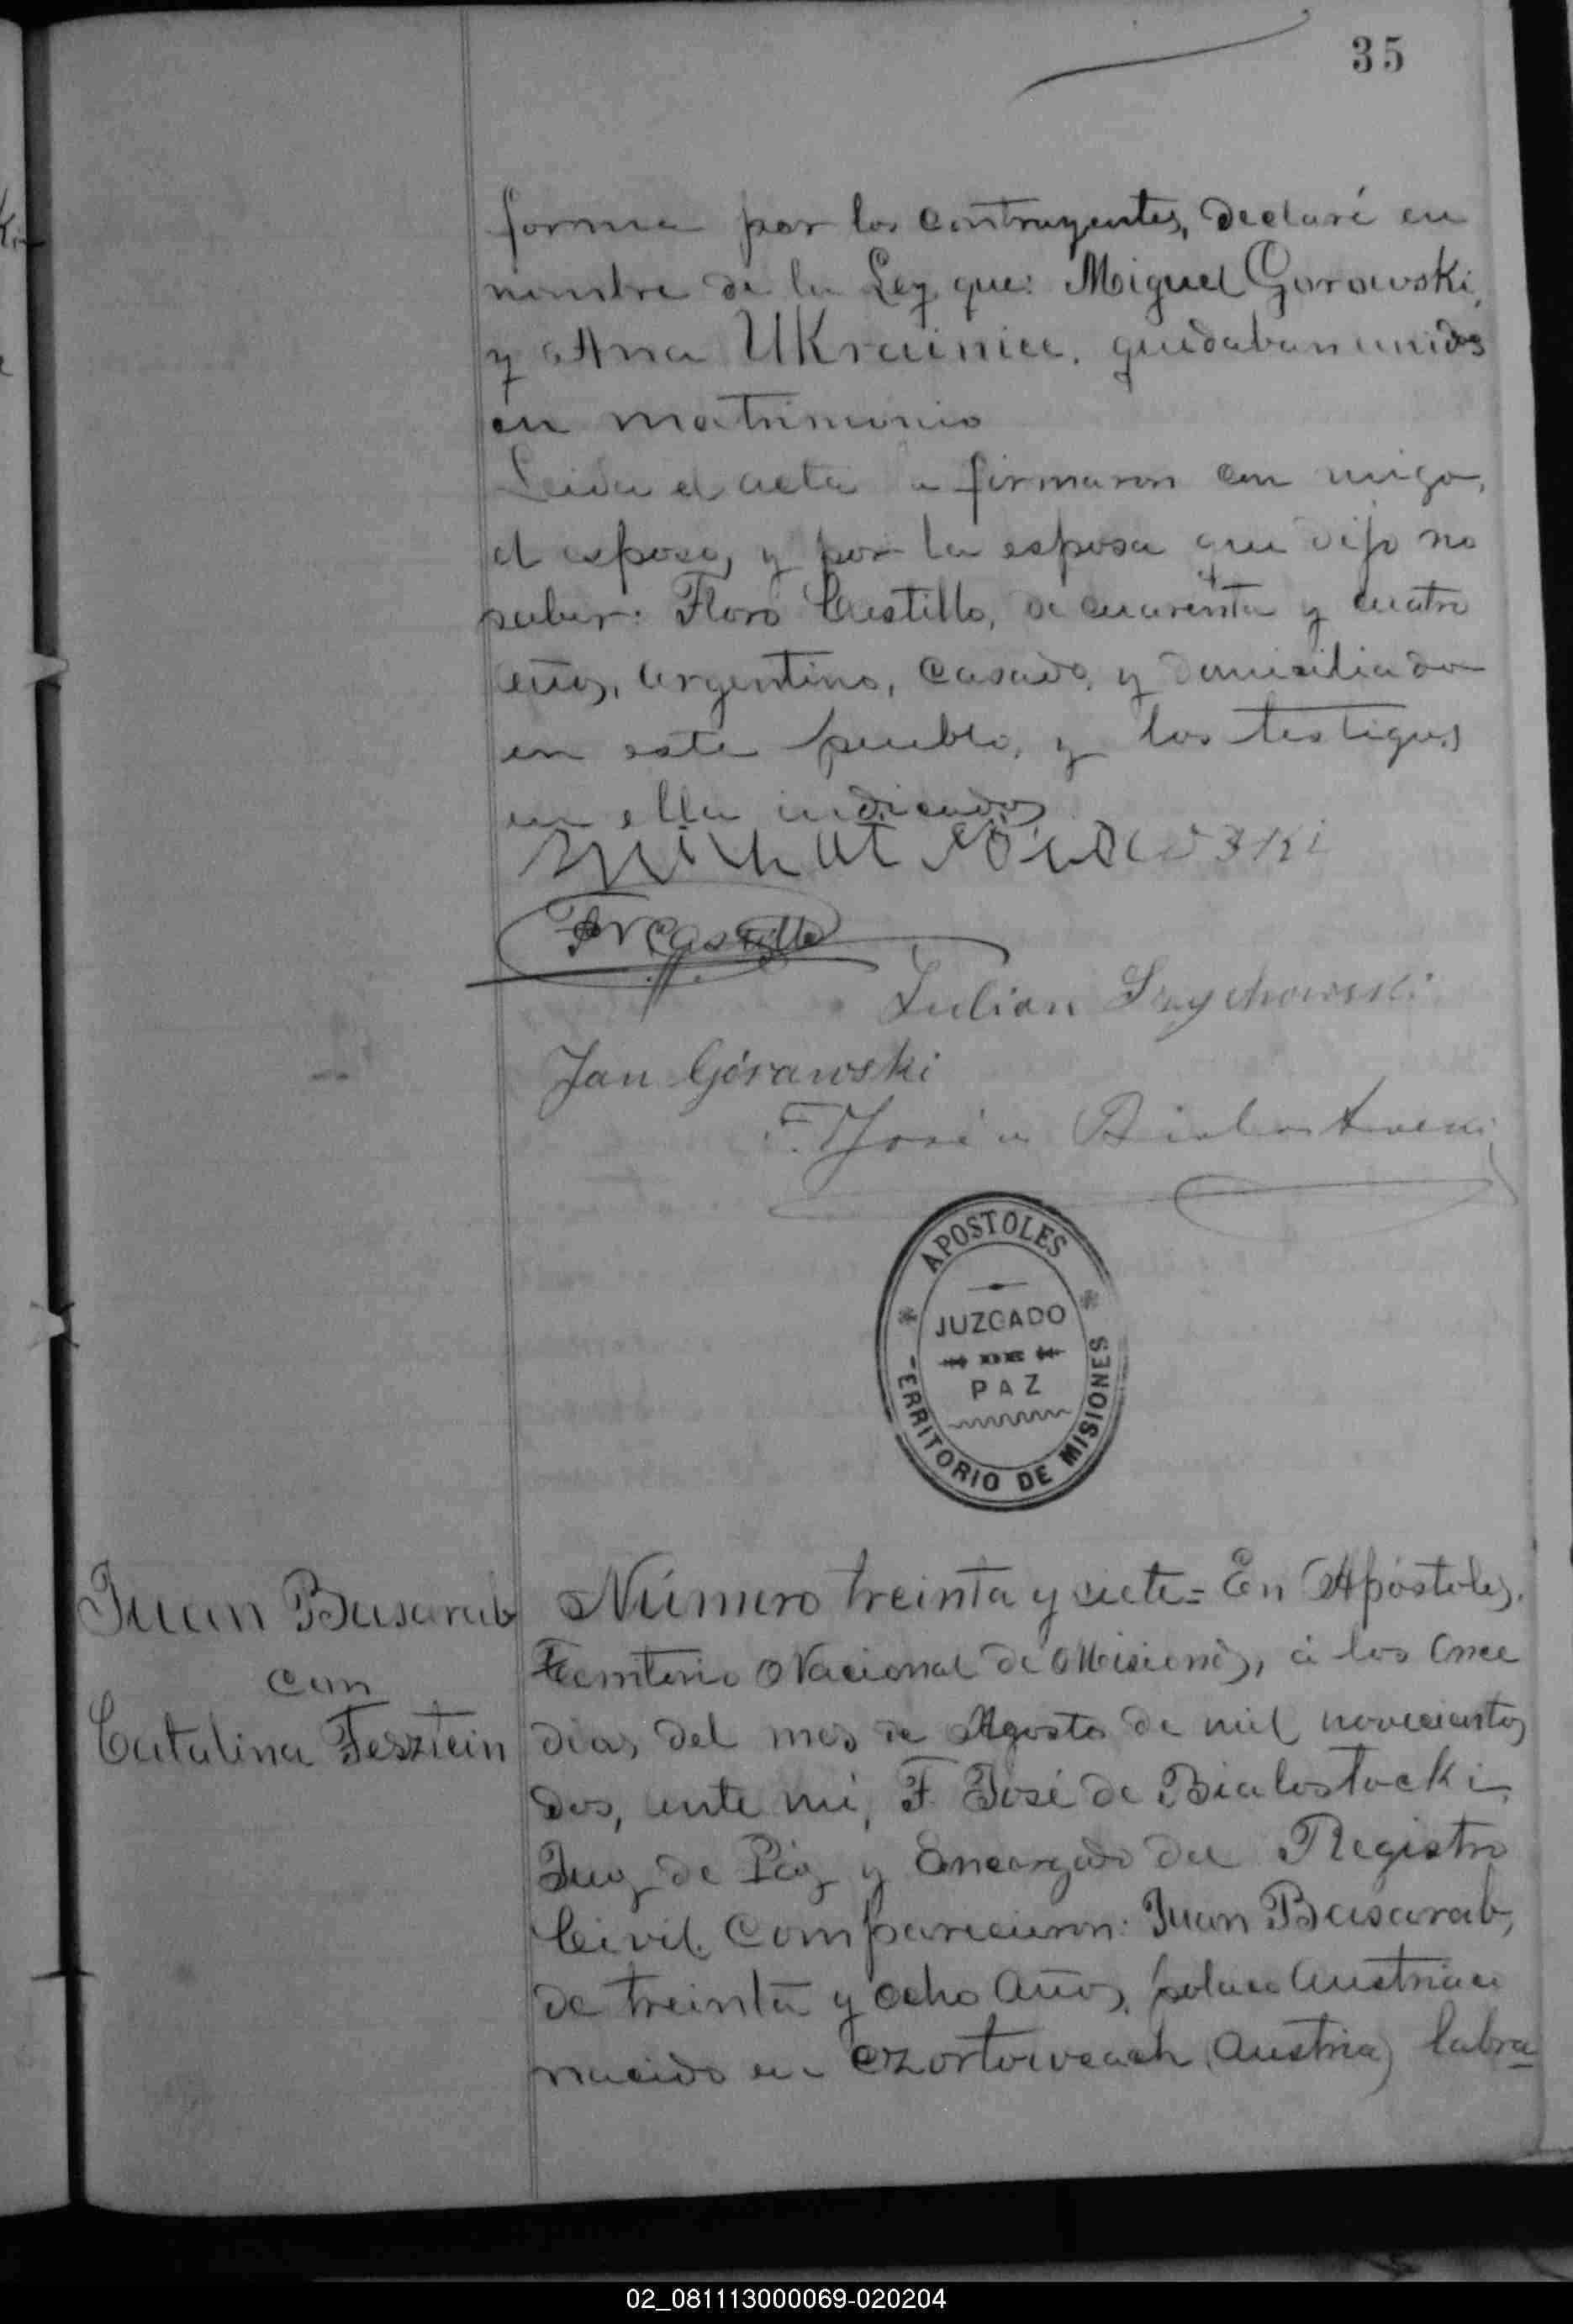 35
forma por los contrayentes, declaré en
nombre de la Ley que: Miguel Gorawski,
y Ana UKrainiec, quedaban unidos
en matrimonio
Leida el acta la firmaron con migo,
el esposo, y por la esposa que dijo no
saber: Floro Castillo, de cuarenta y cuatro
años, argentino, casado, y domisiliado
en este pueblo, y los testigos
en ella indicados
F Castillo
Julian
Jan Górawski
F. José de Bialostocki
APOSTOLES
JUZGADO
DE
PAZ
TERRITORIO DE MISIONES
Juan Basarab
con
Catalina Fesztein
Número treinta y siete = En Apóstoles,
Territorio Nacional de Misiones, á los once
dias del mes de Agosto de mil novecientos
dos, ante mí, F. José de Bialostocki,
Juez de Páz y Encargado del Registro
Civil, comparecieron: Juan Basarab,
de treinta y ocho años, polaco Austriaco
nacido en (Austria) labra
02_081113000069-020204